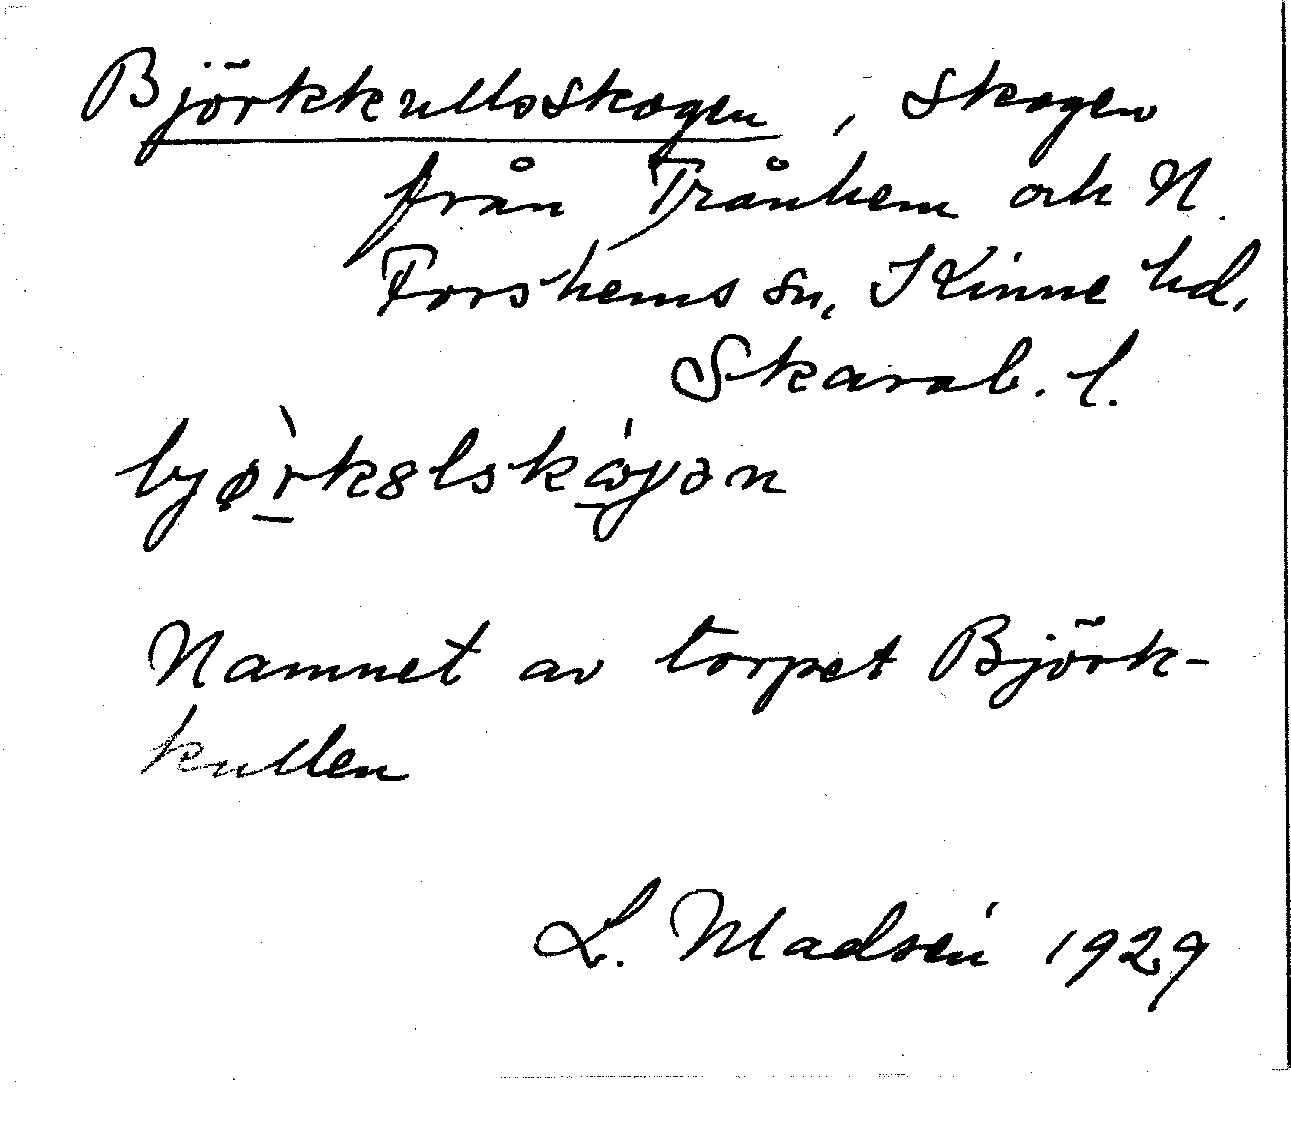 Björkkullsskogen, Skogen
från Trånhem och N.
Forshems sn, Kinne hd,
Skarab. l.
Namnet av torpet Björk-
kullen
L. Madsén 1929